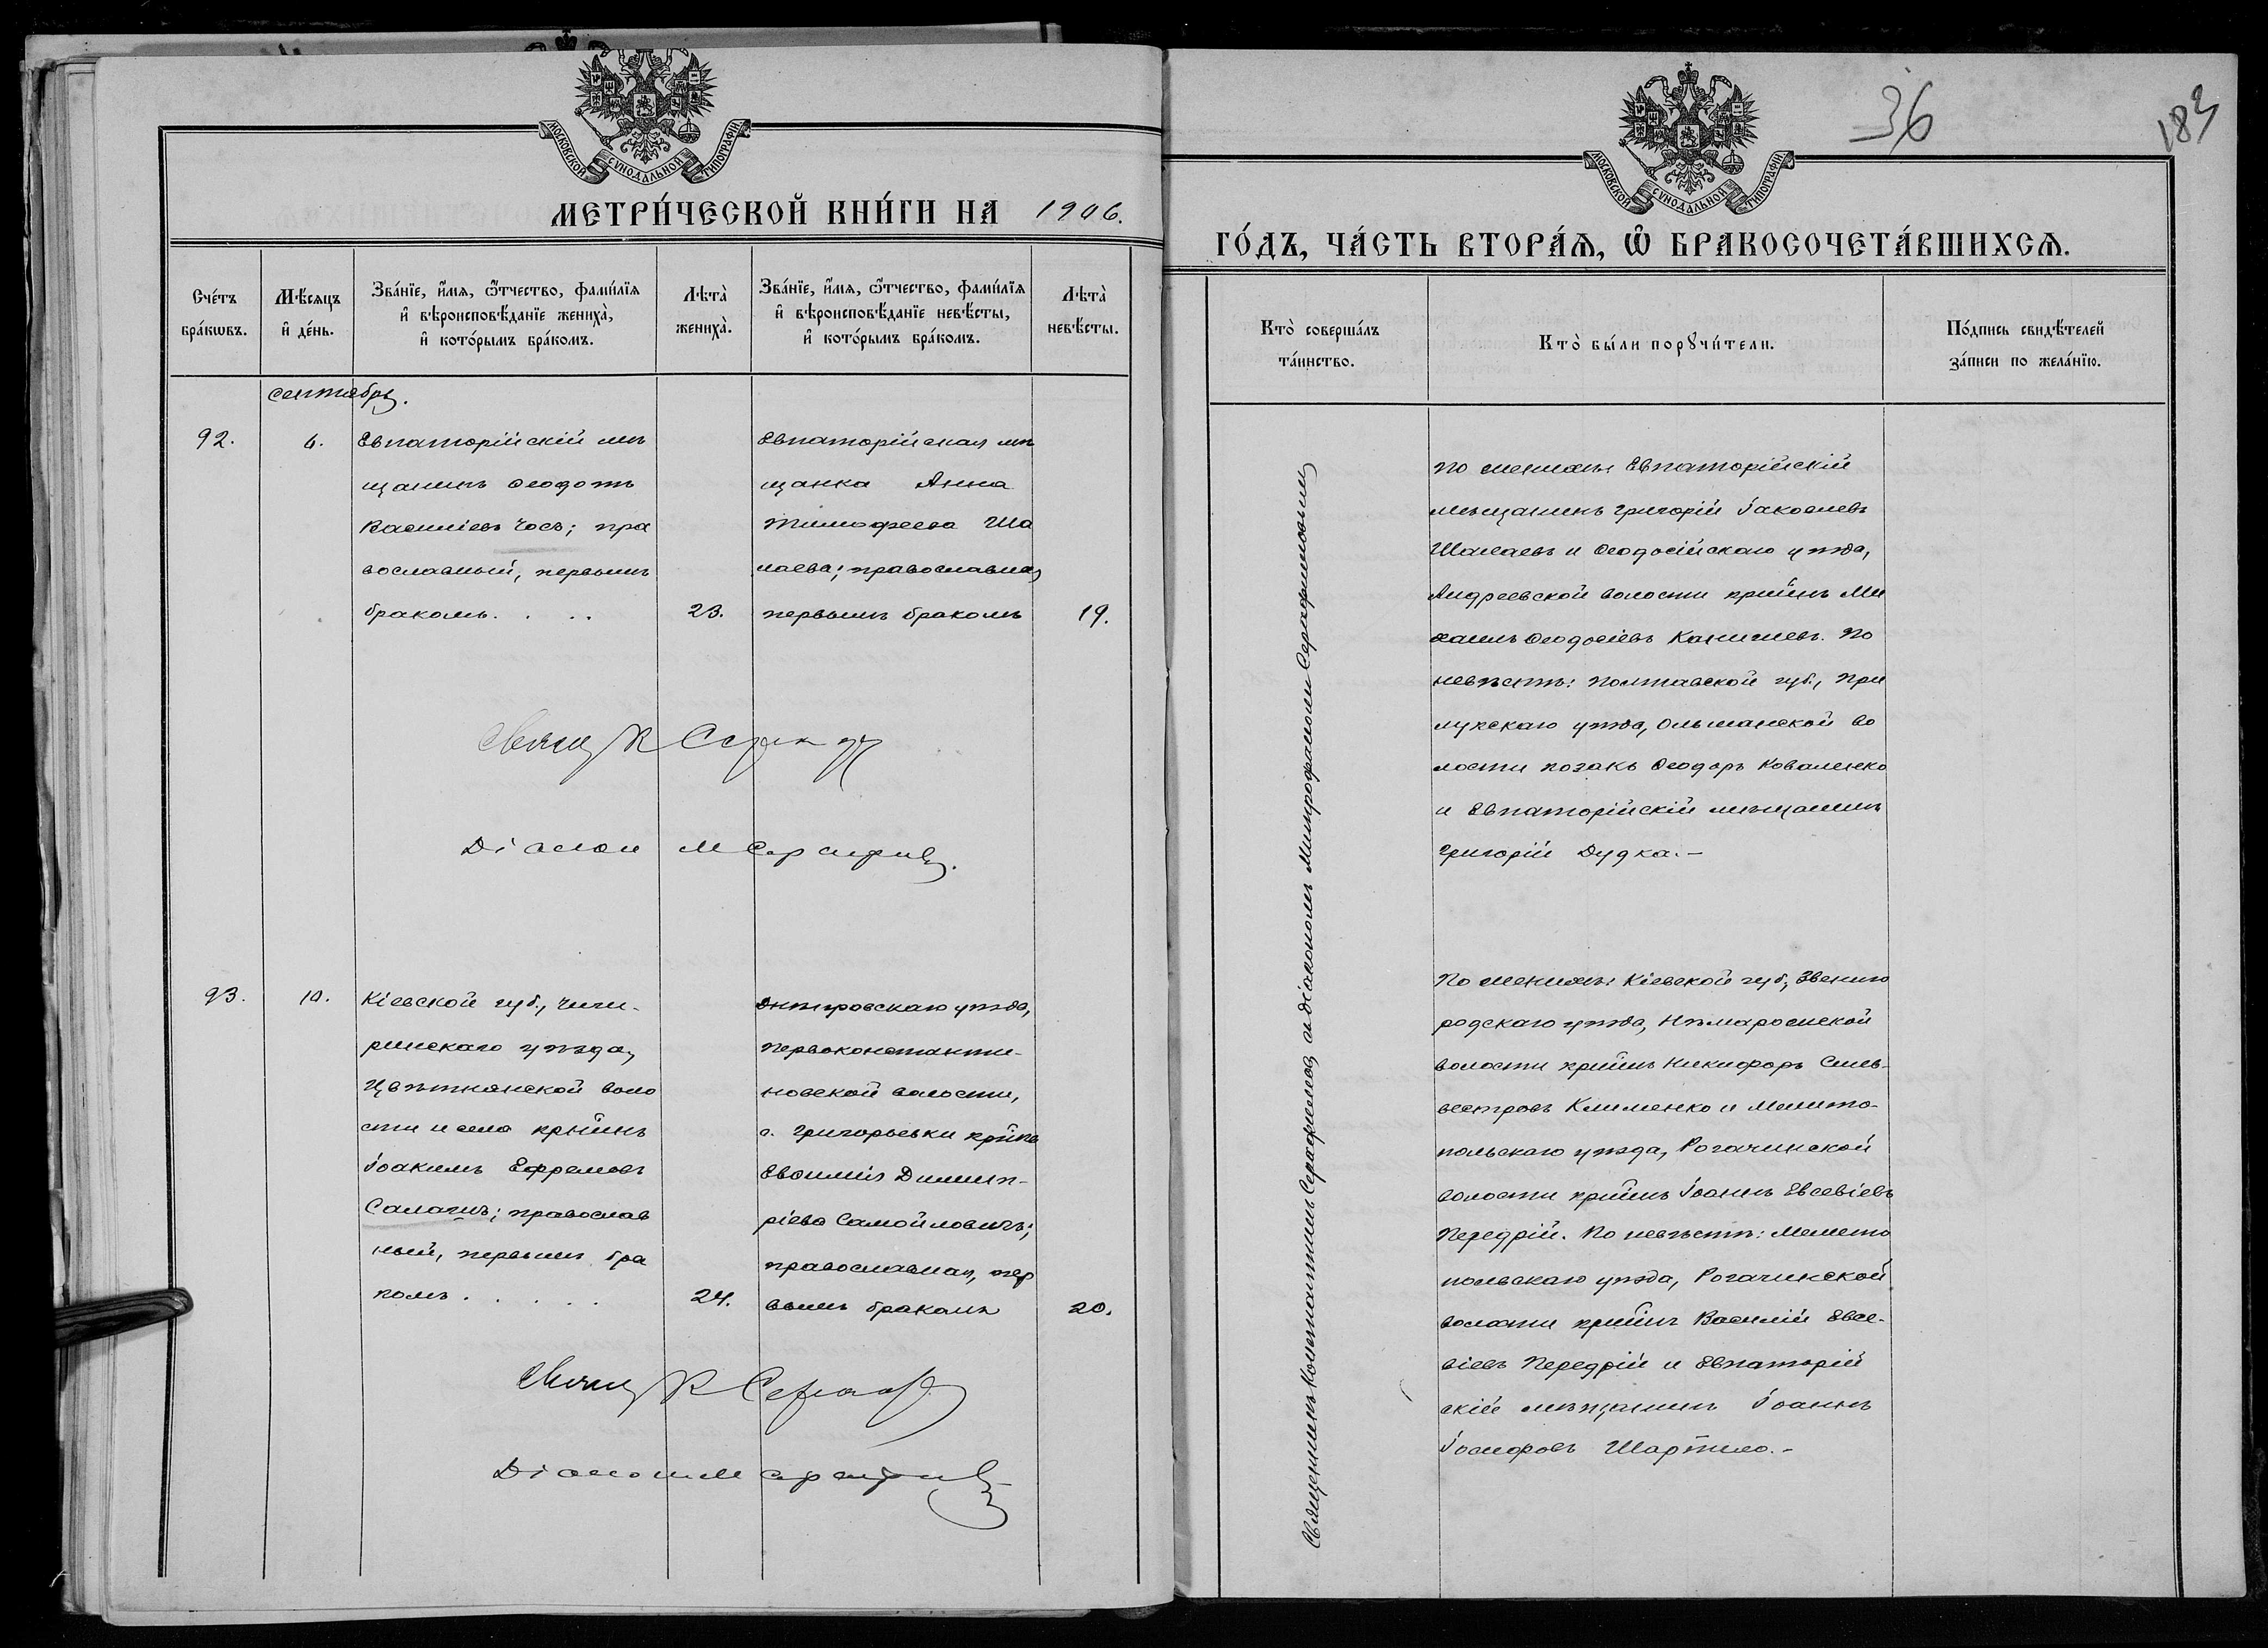 МОСКОВСКОЙ СѴНОДАЛЬНОЙ ТИПОГРАФІИ
МЕТРИ́ЧЕСКОЙ КНИ́ГИ НА 1906.
Сче́тъ бра́кωвъ.
Мѣ́сяцъ и҆ де́нь.
Зва́нїе, и҆́мя, ѻ҆́тчество, фами́лїя и҆ вѣроисповѣ́данїе жениха̀, и҆ кото́рымъ бра́комъ.
Лѣта̀ жениха̀.
Зва́нїе, и҆́мя, ѻ҆́тчество, фами́лїя и҆ вѣроисповѣ́данїе невѣ́сты, и҆ кото́рымъ бра́комъ.
Лѣта̀ невѣ́сты.
сентябрь.
92.
6.
Евпаторійскій мѣ
щанинъ Ѳеодотъ
Василіевъ Чосъ; пра
вославный, первымъ
бракомъ. . . .
23.
Евпаторійская мѣ
щанка Анна
Тимофеева Ша
лаева; православная
первымъ бракомъ
19.
Свящ К
Діакон М
93.
10.
Кіевской губ., Чиги-
ринскаго уѣзда,
Цвѣтнянской воло
сти и села крнинъ
Іоакимъ Ефремовъ
православ
ный, первымъ бра
комъ . . . . .
24.
Днѣпровскаго уѣзда,
Первоконстанти-
новской волости,
с. Григорьевки
Евѳимія Димит-
ріева Самойловичъ;
православная, пер
вымъ бракомъ
20.
Свящ К
Діакон М
МОСКОВСКОЙ СѴНОДАЛЬНОЙ ТИПОГРАФІИ
36
183
ГО́ДЪ, ЧА́СТЬ ВТОРА́Я, Ѽ БРАКОСОЧЕТА́ВШИХСЯ.
Кто̀ соверша́лъ та́инство.
Кто̀ бы́ли порꙋчи́тели.
По́дпись свидѣ́телей за́писи по жела́нїю.
Священникъ Константинъ Серафимовъ съ діакономъ Митрофаномъ Серафимовымъ
По женихѣ: Евпаторійскій
мѣщанинъ Григорій Іаковлевъ
Шалаевъ и Ѳеодосійскаго уѣзда,
Андреевской волости крнинъ Ми
хаилъ Ѳеодосіевъ По
невѣстѣ: Полтавской губ., При
лукскаго уѣзда, Ольшанской во
лости козакъ Ѳеодоръ Коваленко
и Евпаторійскій мѣщанинъ
Григорій Дудка.-
По женихѣ: Кіевской губ., Звениго
родскаго уѣзда,
волости крнинъ Никифоръ Силь-
вестровъ Клименко и Мелито-
польскаго уѣзда, Рогачинской
волости крнинъ Іоаннъ Евсевіевъ
Передрій. По невѣстѣ: Мелито
польскаго уѣзда, Рогачинской
волости крнинъ Василій Евсе-
віевъ Передрій и Евпаторій
скій мѣщанинъ Іоаннъ
Іосифовъ